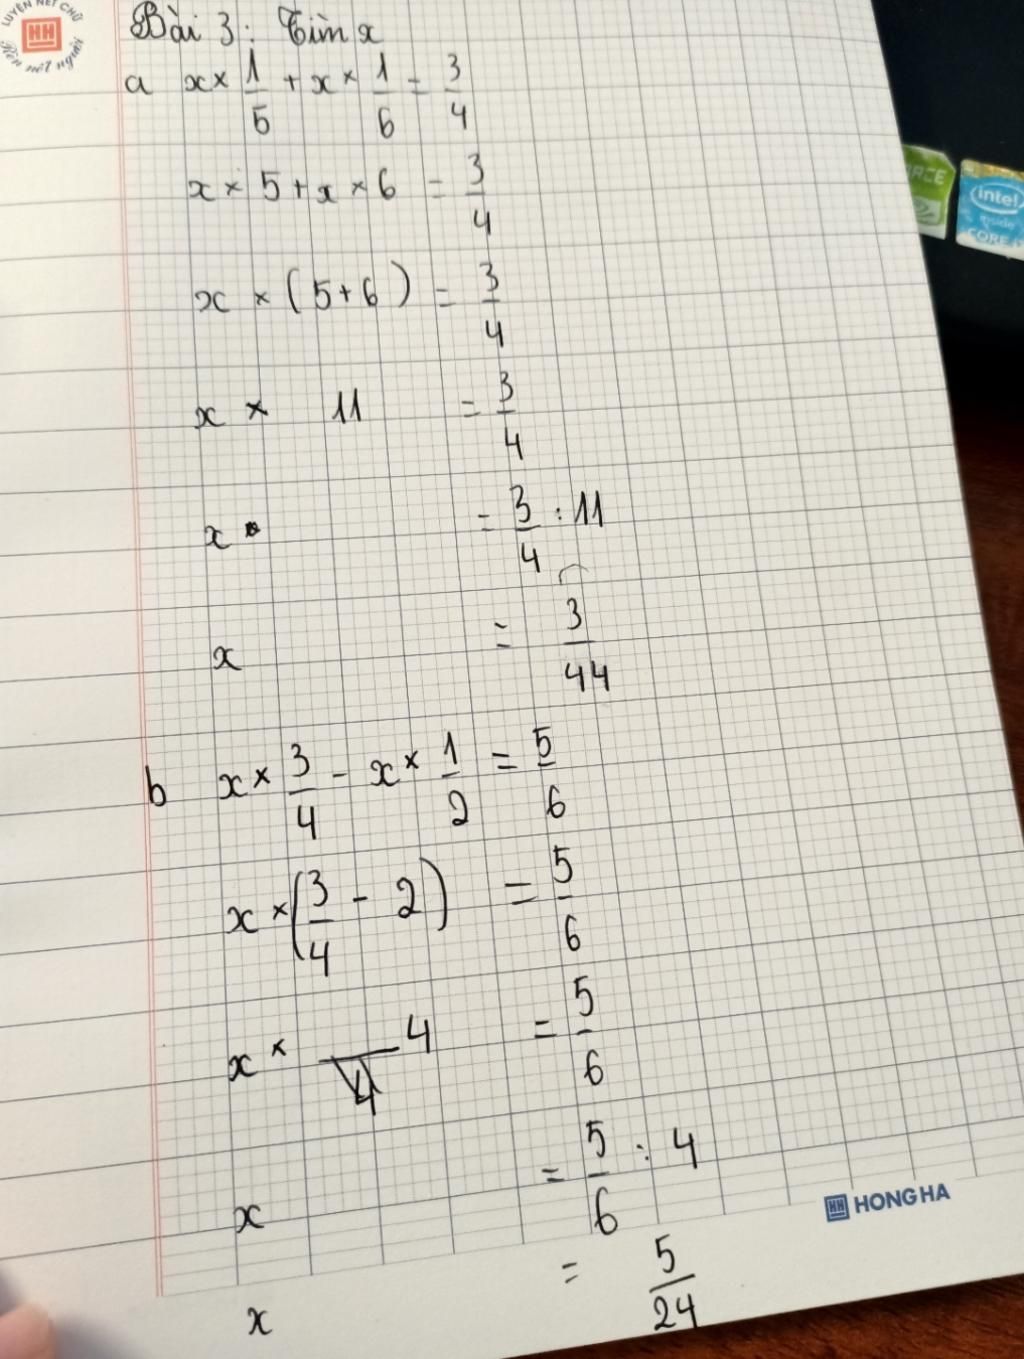 LUYỆN NÉT CHỮ
HH
Rèn nết người
Bài 3: Tìm x
a x × 1/5 + x × 1/6 = 3/4
x × 5 + x × 6 = 3/4
x × (5+6) = 3/4
x × 11 = 3/4
x = 3/4 : 11
x = 3/44
b x × 3/4 - x × 1/2 = 5/6
x × (3/4 - 2) = 5/6
x × 4 = 5/6
x = 5/6 : 4
x = 5/24
HH HONG HA
intel
inside
CORE i